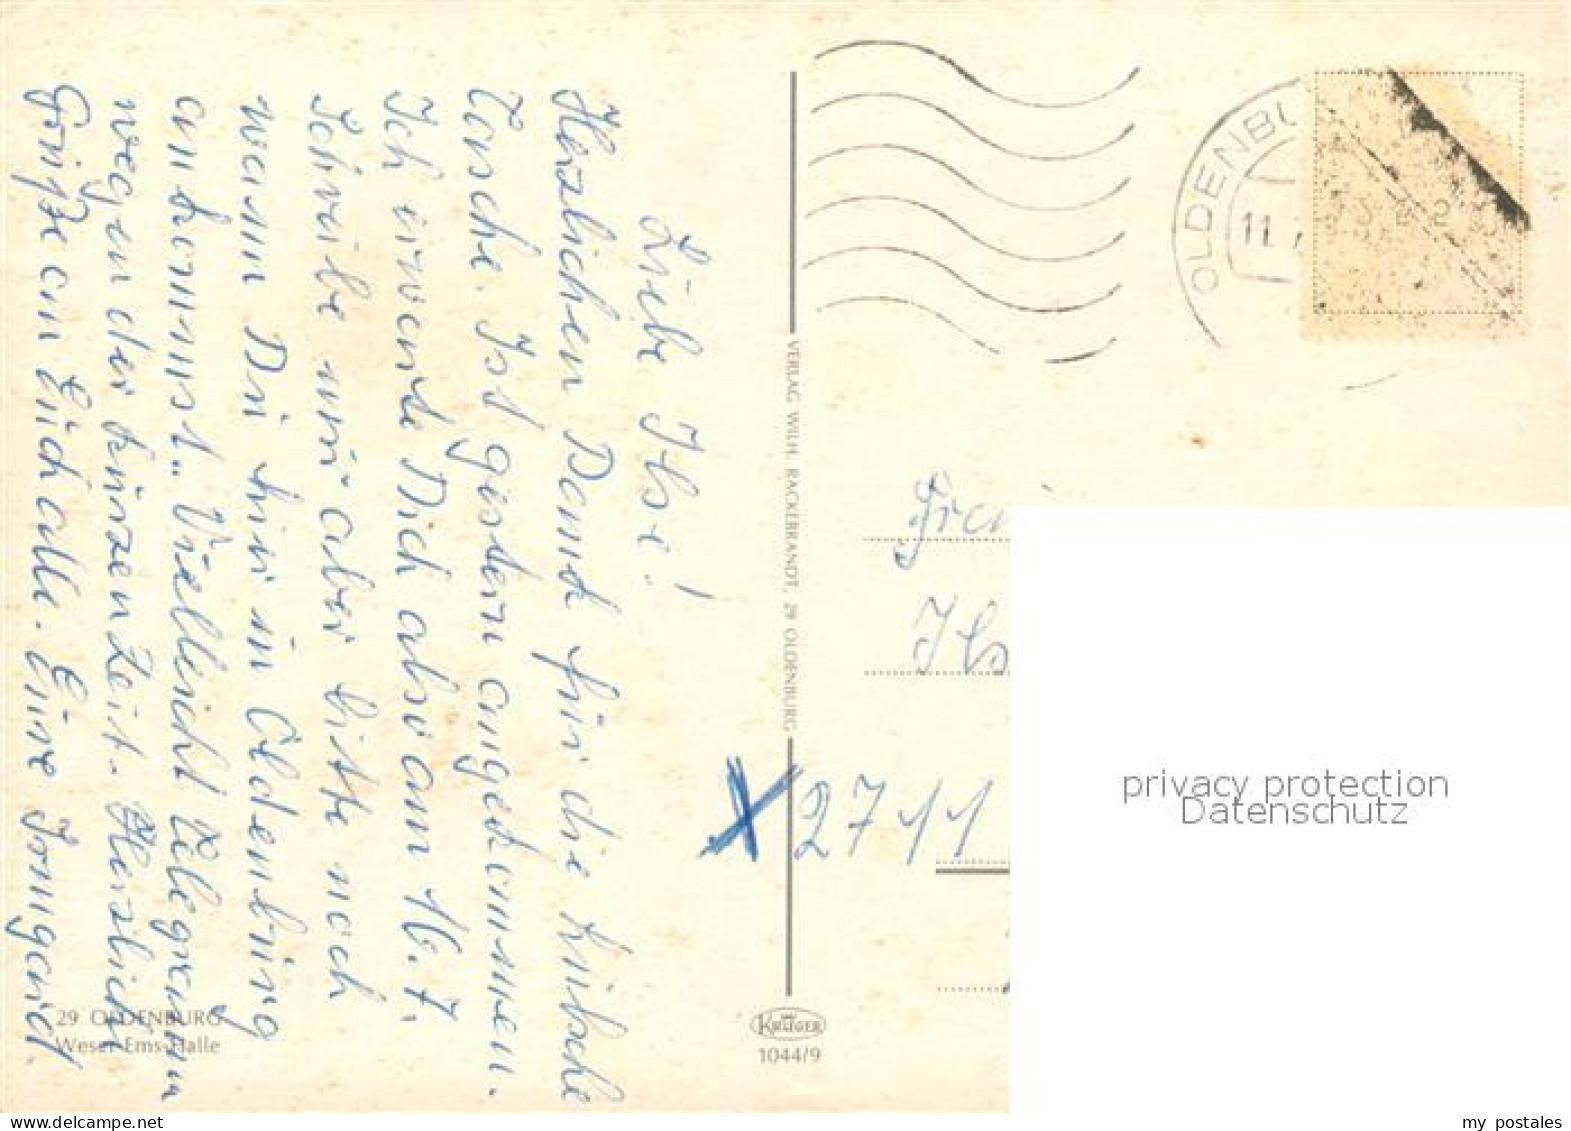 Liebe Ilse!
Herzlichen Dank für die hübsche
Tasche. Ist gestern angekommen.
Ich erwarte Dich also am 16.7.
Schreibe mir aber bitte noch
wann Du hier in Oldenburg
ankommst.. Vielleicht Telegramm
wegen der kurzen Zeit. Herzliche
Grüße an Euch alle. Eure Irmgard.
29 OLDENBURG
Weser-Ems-Halle
VERLAG WILH. RACKEBRANDT, 29 OLDENBURG
KRÜGER
1044/9
OLDENBU
11.
Ils
X 2711
privacy protection
Datenschutz
my postales